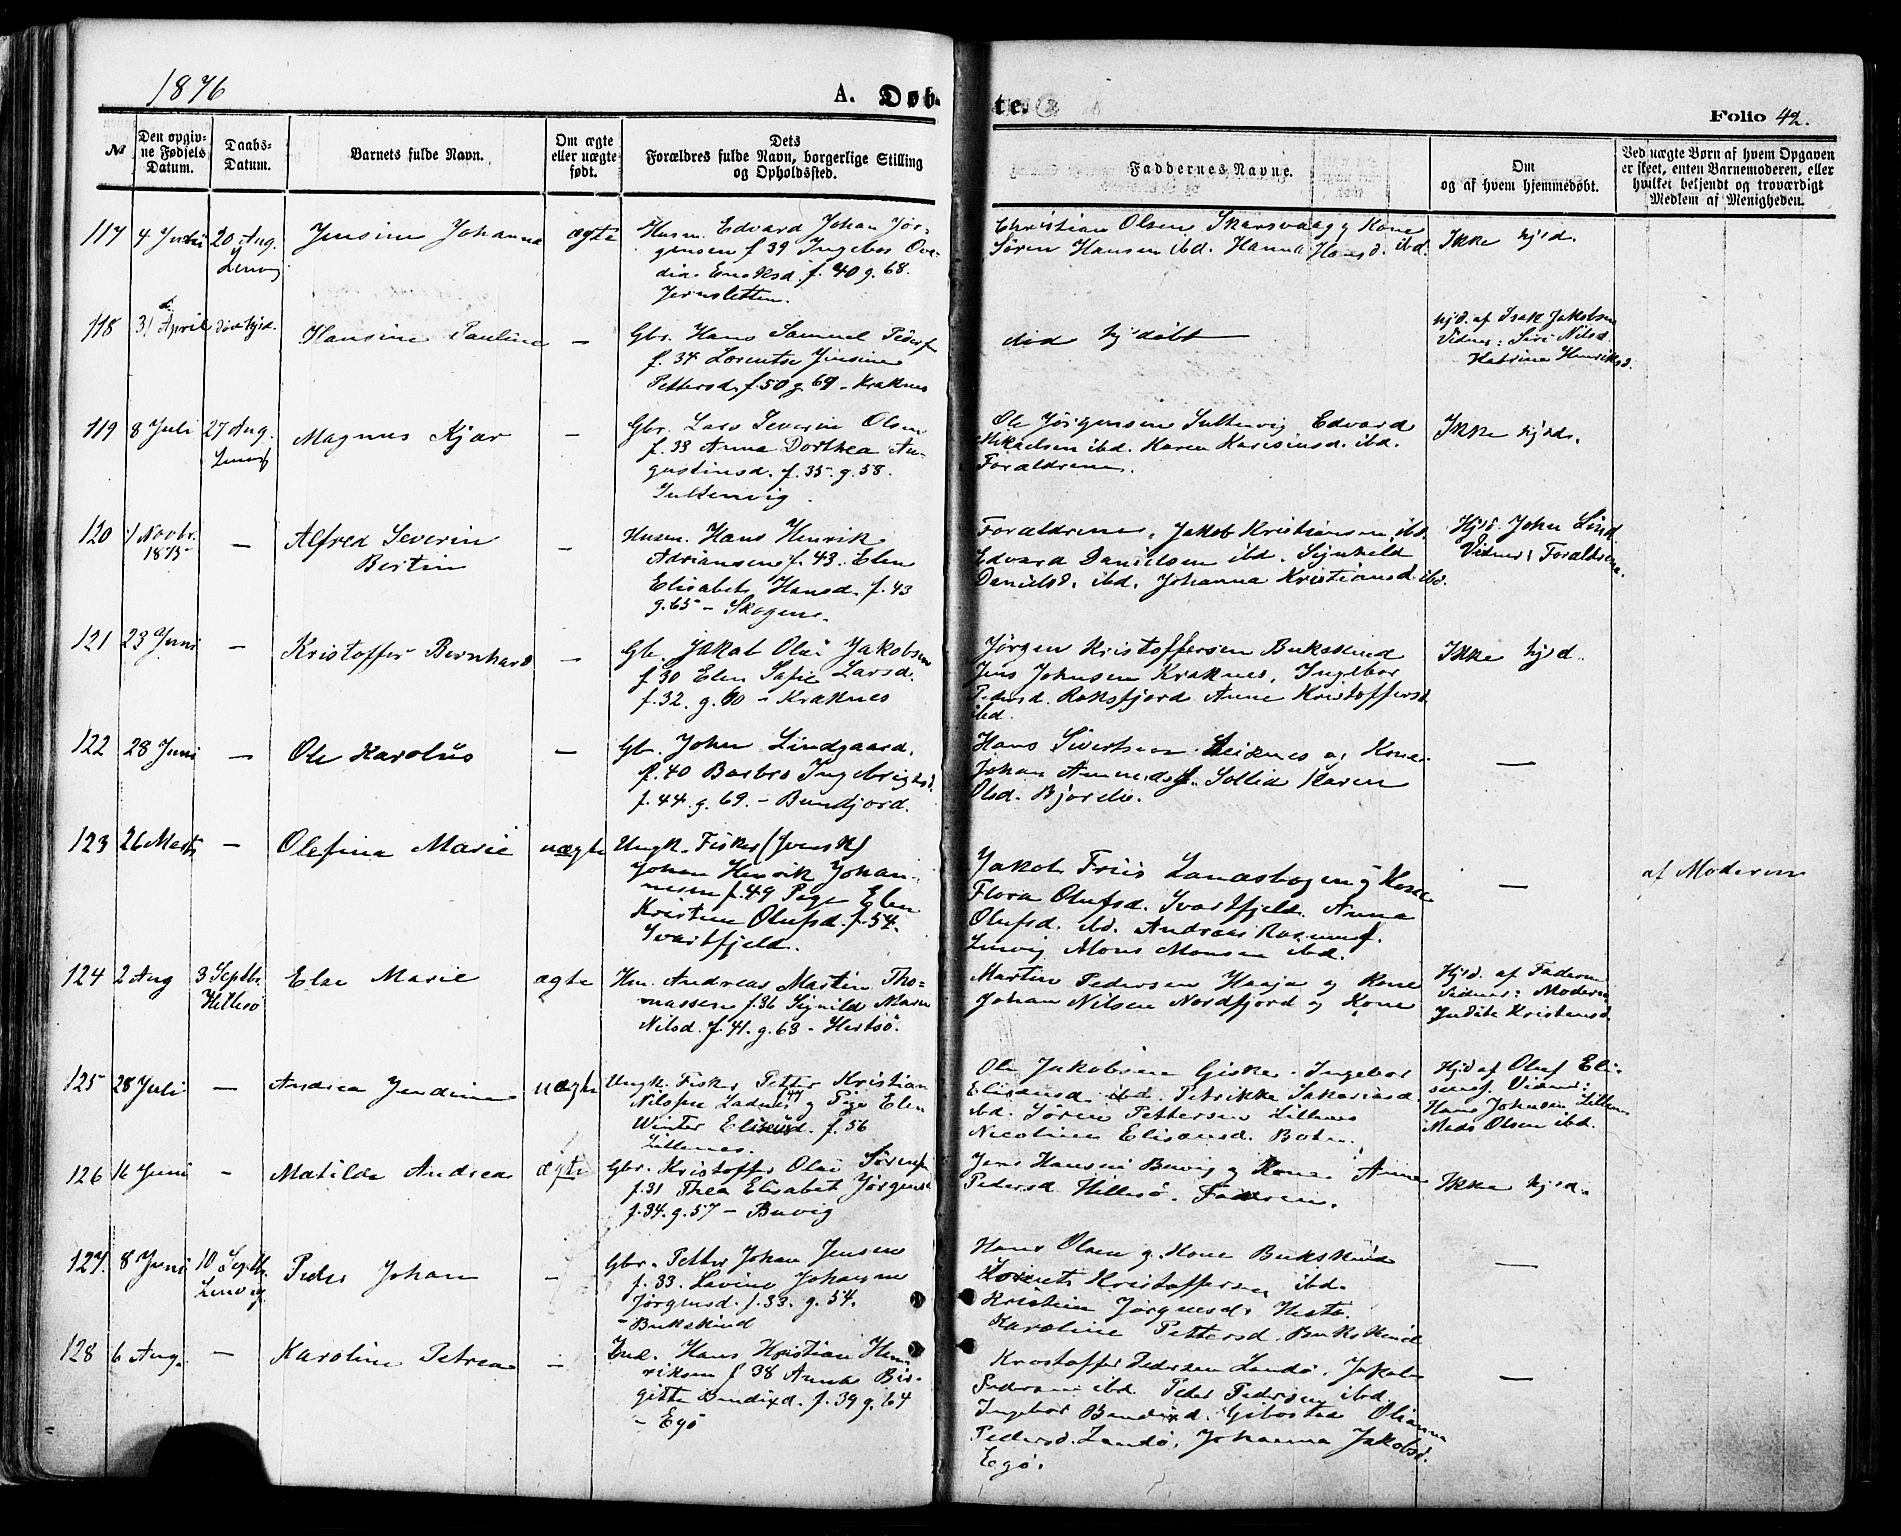 1876
A. Døbte.
Folio 42.
№
Den opgivne Fødsels Datum.
Daabs-Datum.
Barnets fulde Navn.
Om ægte eller uægte født.
Dets Forældres fulde Navn, borgerlige Stilling og Opholdssted.
Faddernes Navne.
Om og af hvem hjemmedøbt.
Ved uægte Børn af hvem Opgaven er skeet, enten Barnemoderen, eller hvilket bekjendt og troværdigt Medlem af Menigheden.
117 4 Juli 20 Aug. Jensine Johanna ægte
Lenvig
Husm. Edvard Johan Jør-
gensen f 39 Ingebor Ova-
dia Eriksd. f. 40 g. 68.
Jernsletten.
Christian Olsen Skarsvaag og Kone
Søren Hansen ibd. Hanna Hansd. ibd.
Ikke hjd.
118 31 April Hansine Pauline —
Gbr. Hans Samuel Peders.
f. 34 Lorentse Jensine
Pettersd. f. 50 g. 69 - Kraknes
død hjdøbt
hjd. af Isak Jakobsen
Vidner: Siri Nilsd.
Katrine Henriksd.
119 8 Juli 27 Aug. Magnus Kjær —
Lenvig
Gbr. Lars Severin Olsen
f. 33 Anna Dorthea Au-
gustinsd. f. 35 g. 58.
Sultenvig.
Ole Jørgensen Sultenvig Edvard
Mikaelsen ibd. Karen Karisiusd. ibd.
Forældrene.
Ikke hjd.
120 1 Novbr. 1875 — Alfred Severin
Bertin —
Husm. Hans Henrik
Adriansen f. 43. Elen
Elisabet Hansd. f. 43
g. 65 - Skogen.
Forældrene, Jakob Kristiansen ibd.
Edvard Danielsen ibd. Synheld
Danielsd. ibd. Johanna Kristiansd. ibd.
Hjd. John Lind
Vidner: Forældrene.
121 23 Juni — Kristoffer Bernhard —
Gb. Jakob Olai Jakobsen
f 30 Elen Safie Larsd.
f. 32. g. 60 - Kraknes
Jørgen Kristoffersen Bukskind
Jens Johnsen Kraknes, Ingebor
Pedersd. Roksfjord Anne Kristoffersd.
ibd.
Ikke hjd.
122 28 Juni — Ole Karolus —
Gb. John Lindgaard.
f. 40 Barbro Ingebrigtsd.
f. 44. g. 69. - Bunfjord.
Hans Sivertsen Leiknes og Kone.
Johan Sollid Karen
Olsd. Bjorelv.
—
123 26 Marts — Olefina Marie uægte
Ungk. Fisker (Svensk)
Johan Henrik Johan-
nesen f. 49 Pige Elen
Kristine Olufsd. f. 54.
Svartfjeld.
Jakob Friis Landsbogen og Kone
Flora Olufsd. Svartfjeld. Anna
Olufsd. ibd. Andreas Rasmus.
Lenvig Mons Monsen ibd.
—
af Moderen
124 2 Aug 3 Septbr. Else Marie ægte
Hillesø
Hm. Andreas Martin Tho-
massen f. 36 Synild Maren
Nilsd. f. 41. g. 63 - Hertsø.
Martin Pedersen Haaja og Kone
Johan Nilsen Nordfjord og Kone
Hjd. af Faderen
Vidner: Moderen
Judite Kristensd.
125 28 Juli — Andrea Jendine uægte
Ungk. Fisker Petter Kristian
Nilssen Ladnes og Pige Elen
Winter Eliseusd. f. 56
Lillenes.
Ole Jakobsen Giske. Ingebor
Eliseusd. ibd. Petrikke Sakariasd.
ibd. Søren Pettersen Lillenes
Nicoline Elisæusd. Boten.
Hjd af Oluf Eli-
seus. Vidner:
Hans Johnsen Lillenes
Mads Olsen ibd.
126 16 Juni — Matilde Andrea ægte
Gbr. Kristoffer Olai Sørens.
f. 31 Thea Elisabet Jørgensd.
f. 34. g. 57 - Buvig
Jens Hansen Buvig og Kone Anne
Pedersd Hillesø. Faderen.
Ikke hjd.
127. 8 Juni 10 Septbr. Peder Johan —
Lenvig
Gbr. Petter Johan Jensen
f. 33. Lavine Johanne
Jørgensd. f. 33. g. 54.
- Bukskind
Hans Olsen og Kone Bukskind
Lorents Kristoffersen ibd.
Kristin Jørgensd. Hesto.
Karoline Pettersd. Bukskind
—
128 6 Aug. — Karoline Petrea —
Ind. Hans Kristian Hen-
riksen f 38 Anna Bir-
gitte Bendixd. f. 39 g. 64
- Egø
Kristoffer Pedersen Landø. Jakob
Pedersen ibd Peder Pedersen ibd.
Ingebor Bendixd. Gibostad Oleanna
Pedersd. Landø, Johanna Jakobsd.
Egø.
—